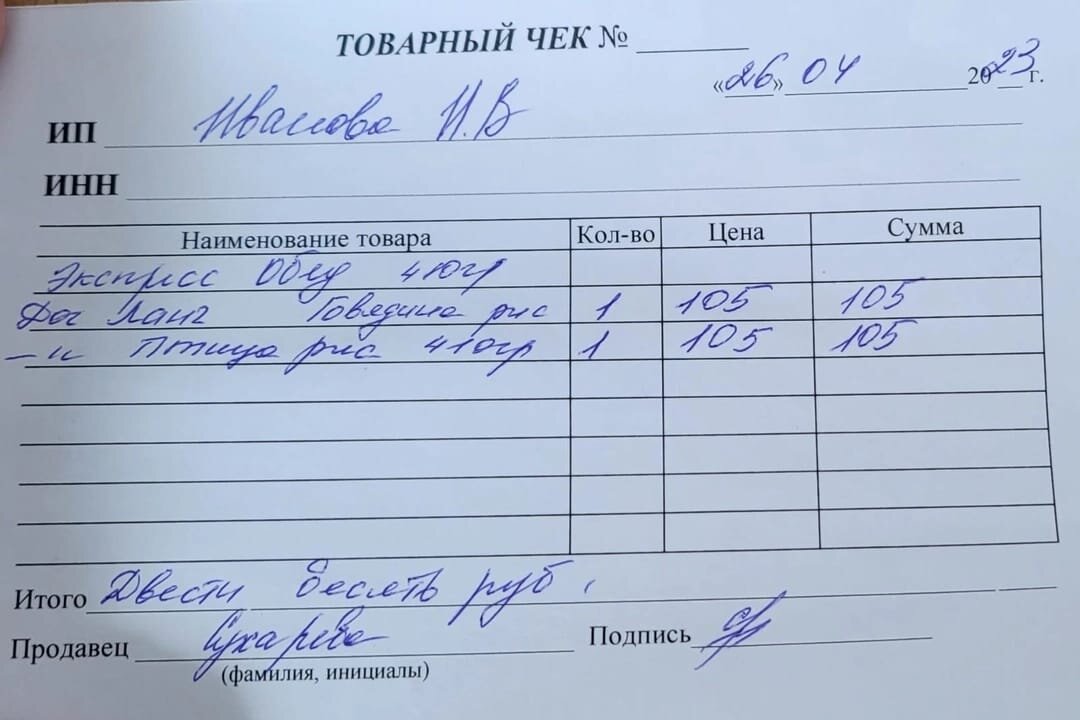 ТОВАРНЫЙ ЧЕК №
«26» 04 2023 г.
ИП Иванова И.В
ИНН
Наименование товара Кол-во Цена Сумма
Экспресс Обед 410гр
Дог Ланг Говядина рис 1 105 105
—и Птица рис 410гр 1 105 105
Итого Двести десять руб.
Продавец Сухарева Подпись
(фамилия, инициалы)